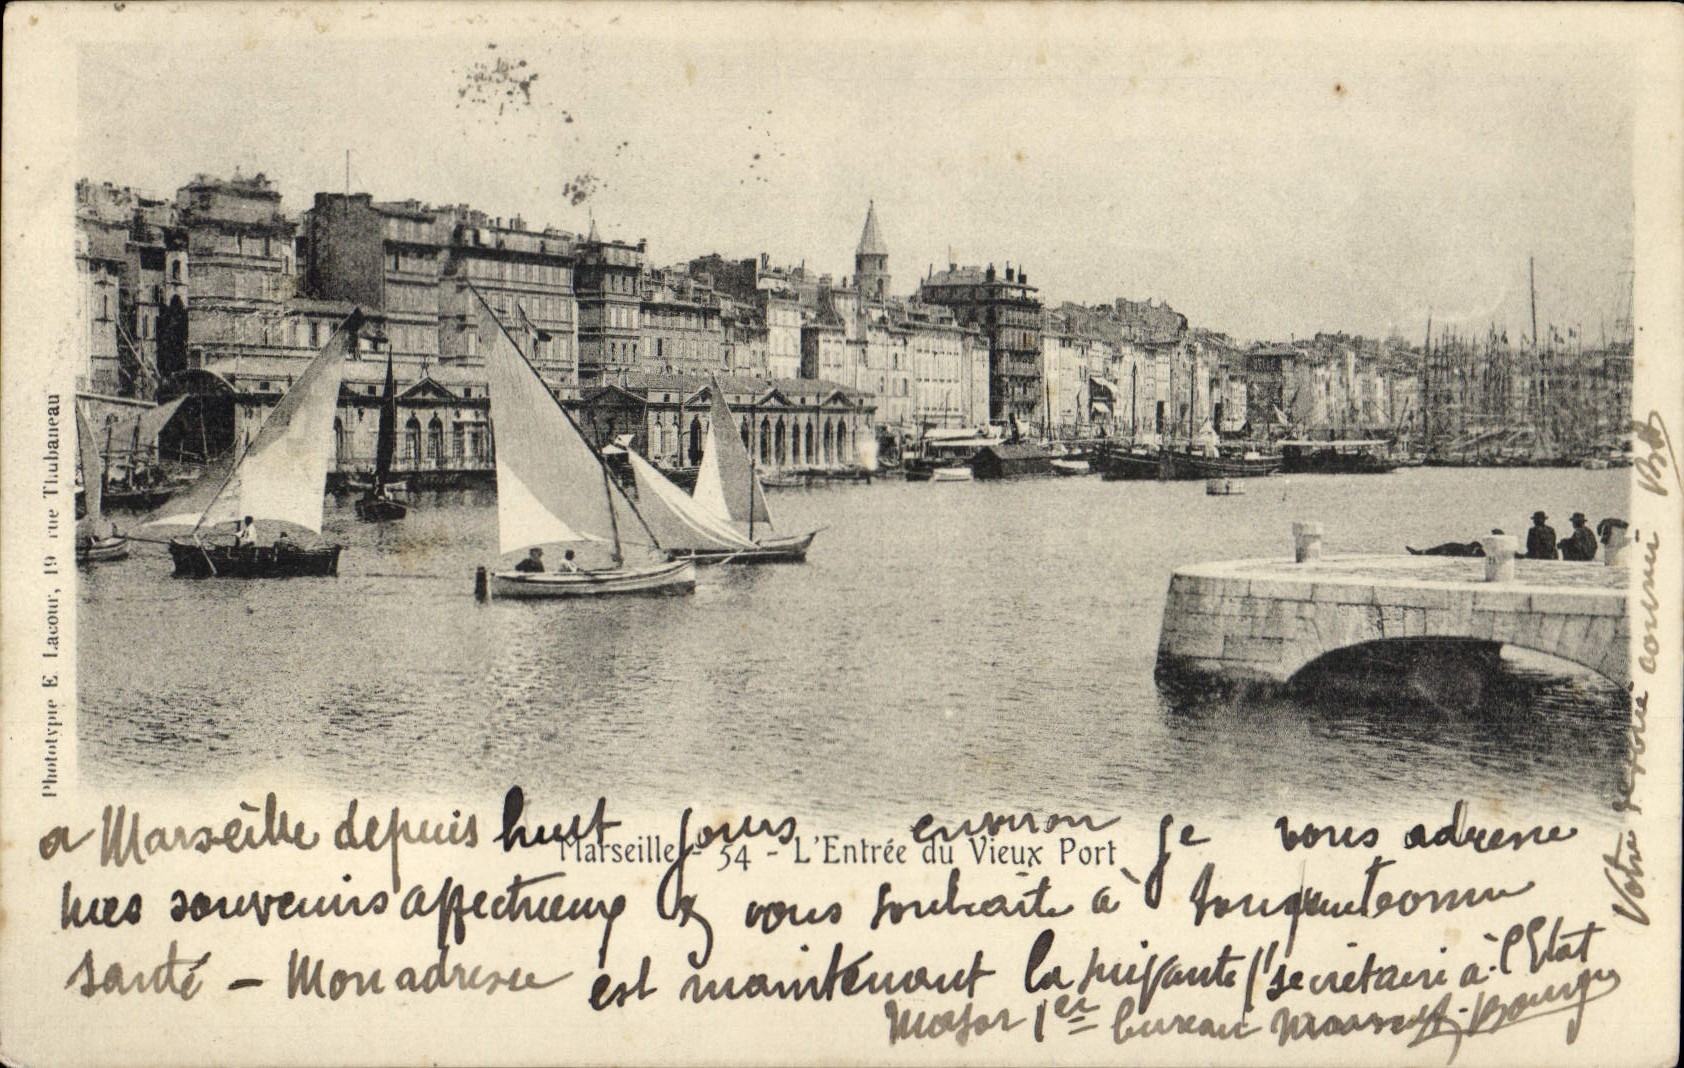 Phototypie E. Lacour, 19 rue Thubaneau
a Marseille depuis huit jours environ je vous adresse
Marseille - 54 - L'Entrée du Vieux Port
mes souvenirs affectueux & vous souhaite à
santé – Mon adresse est maintenant la suivante secrétaire à l'Etat
Major 1er bureau
Votre dévoué cousin